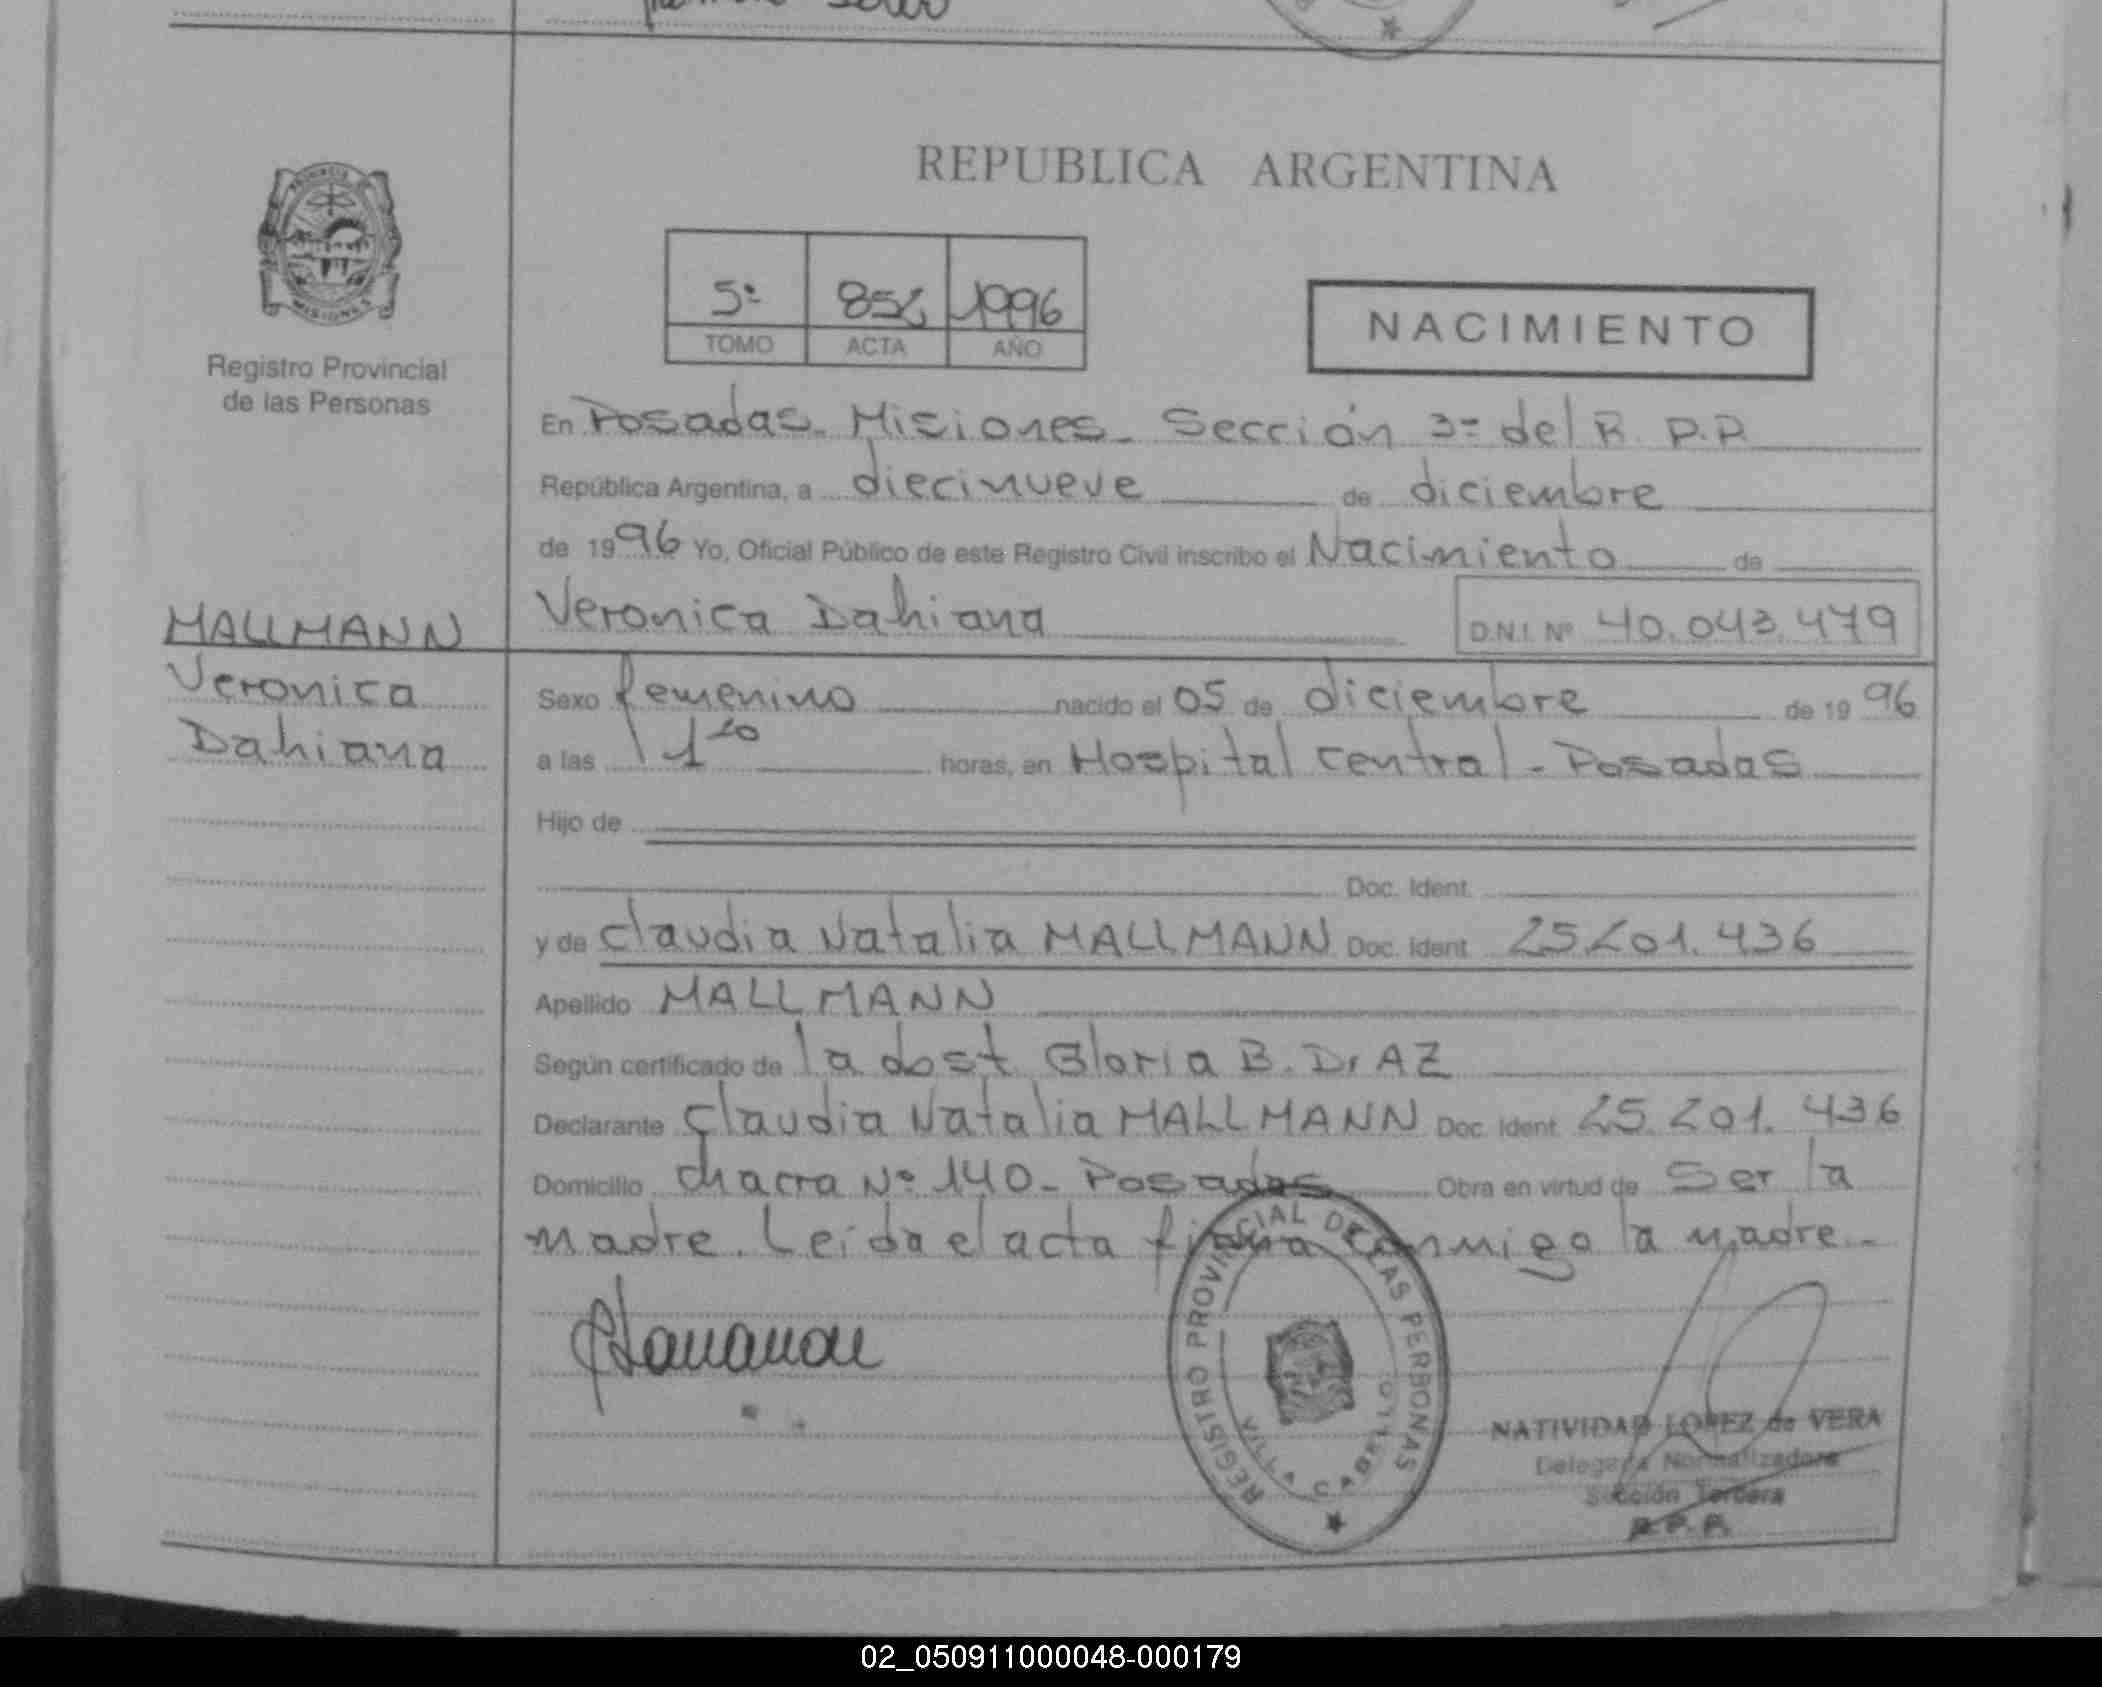 REPUBLICA ARGENTINA
PROVINCIA DE
MISIONES
Registro Provincial
de las Personas
5º 1996
TOMO ACTA AÑO
NACIMIENTO
En Posadas. Misiones. Sección 3º del R. P.P.
República Argentina, a diecinueve de diciembre
de 1996 Yo, Oficial Público de este Registro Civil inscribo el Nacimiento de
MALLMANN
Veronica
Dahiana
Veronica Dahiana D.N.I. Nº 40.043.479
Sexo femenino nacido el 05 de diciembre de 1996
a las horas, en Hospital central - Posadas
Hijo de
Doc. Ident.
y de Claudia Natalia MALLMANN Doc. Ident. 25.201.436
Apellido MALLMANN
Según certificado de la obst. Gloria B. DIAZ
Declarante Claudia Natalia MALLMANN Doc. Ident. 25.201.436
Domicilio chacra Nº 140 - Posadas Obra en virtud de Ser la
madre. Leída el acta firma conmigo la madre.-
REGISTRO PROVINCIAL DE LAS PERSONAS
VILLA CABELLO
NATIVIDAD LOPEZ de VERA
Delegada Normalizadora
Sección Tercera
R.P.P.
02_050911000048-000179